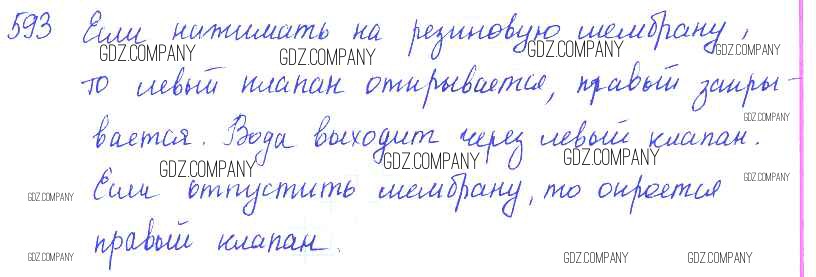 593 Если нажимать на резиновую мембрану,
GDZ.COMPANY GDZ.COMPANY GDZ.COMPANY GDZ.COMPANY
то левый клапан открывается, правый закры-
GDZ.COMPANY
вается. Вода выходит через левый клапан.
GDZ.COMPANY GDZ.COMPANY GDZ.COMPANY
GDZ.COMPANY
Если отпустить мембрану, то окроется
GDZ.COMPANY
правый клапан.
GDZ.COMPANY GDZ.COMPANY GDZ.COMPANY